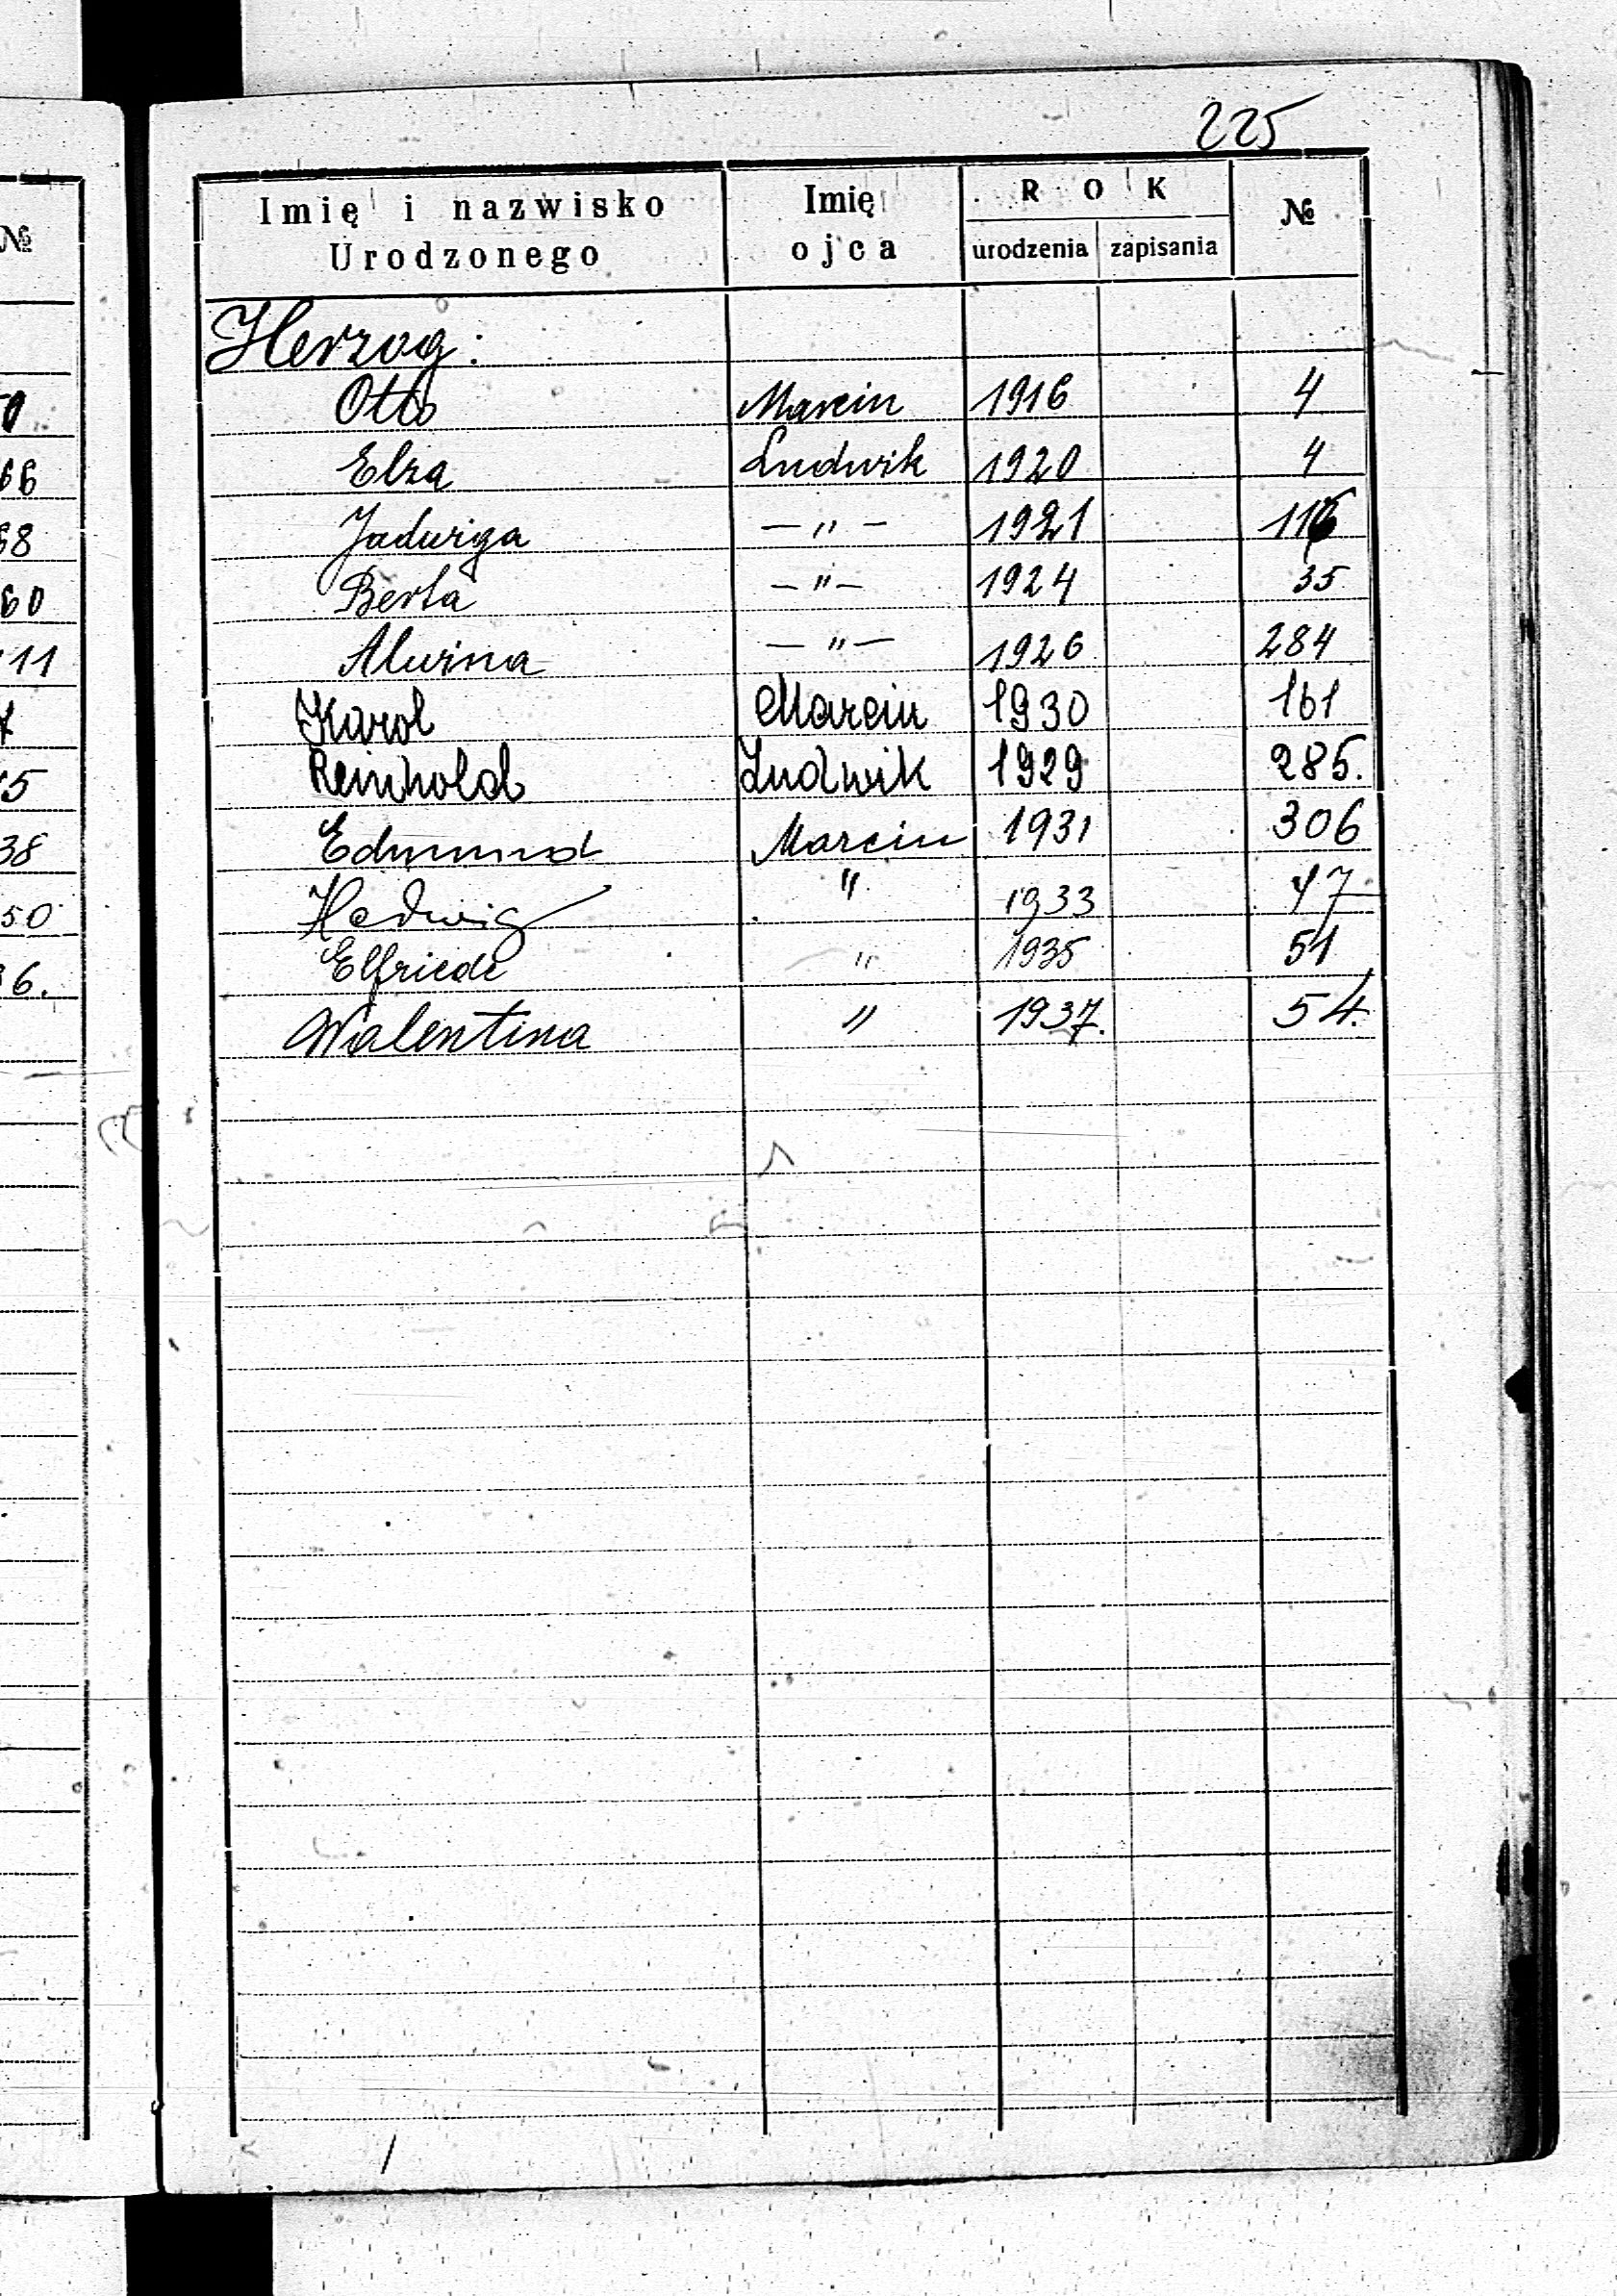 225
Imię i nazwisko Urodzonego Imię ojca ROK urodzenia zapisania №
Herzog:
Otto Marcin 1916 4
Elza Ludwik 1920 4
Jadwiga — " — 1921
Berta — " — 1924 35
Alwina — " — 1926 284
Karol Marcin 1930 161
Reinhold Ludwik 1929 285.
Edmund Marcin 1931 306
Hedwig " 1933 47
Elfriede " 1935 51
Walentina " 1937. 54.
№
66
68
60
11
5
38
50
6.